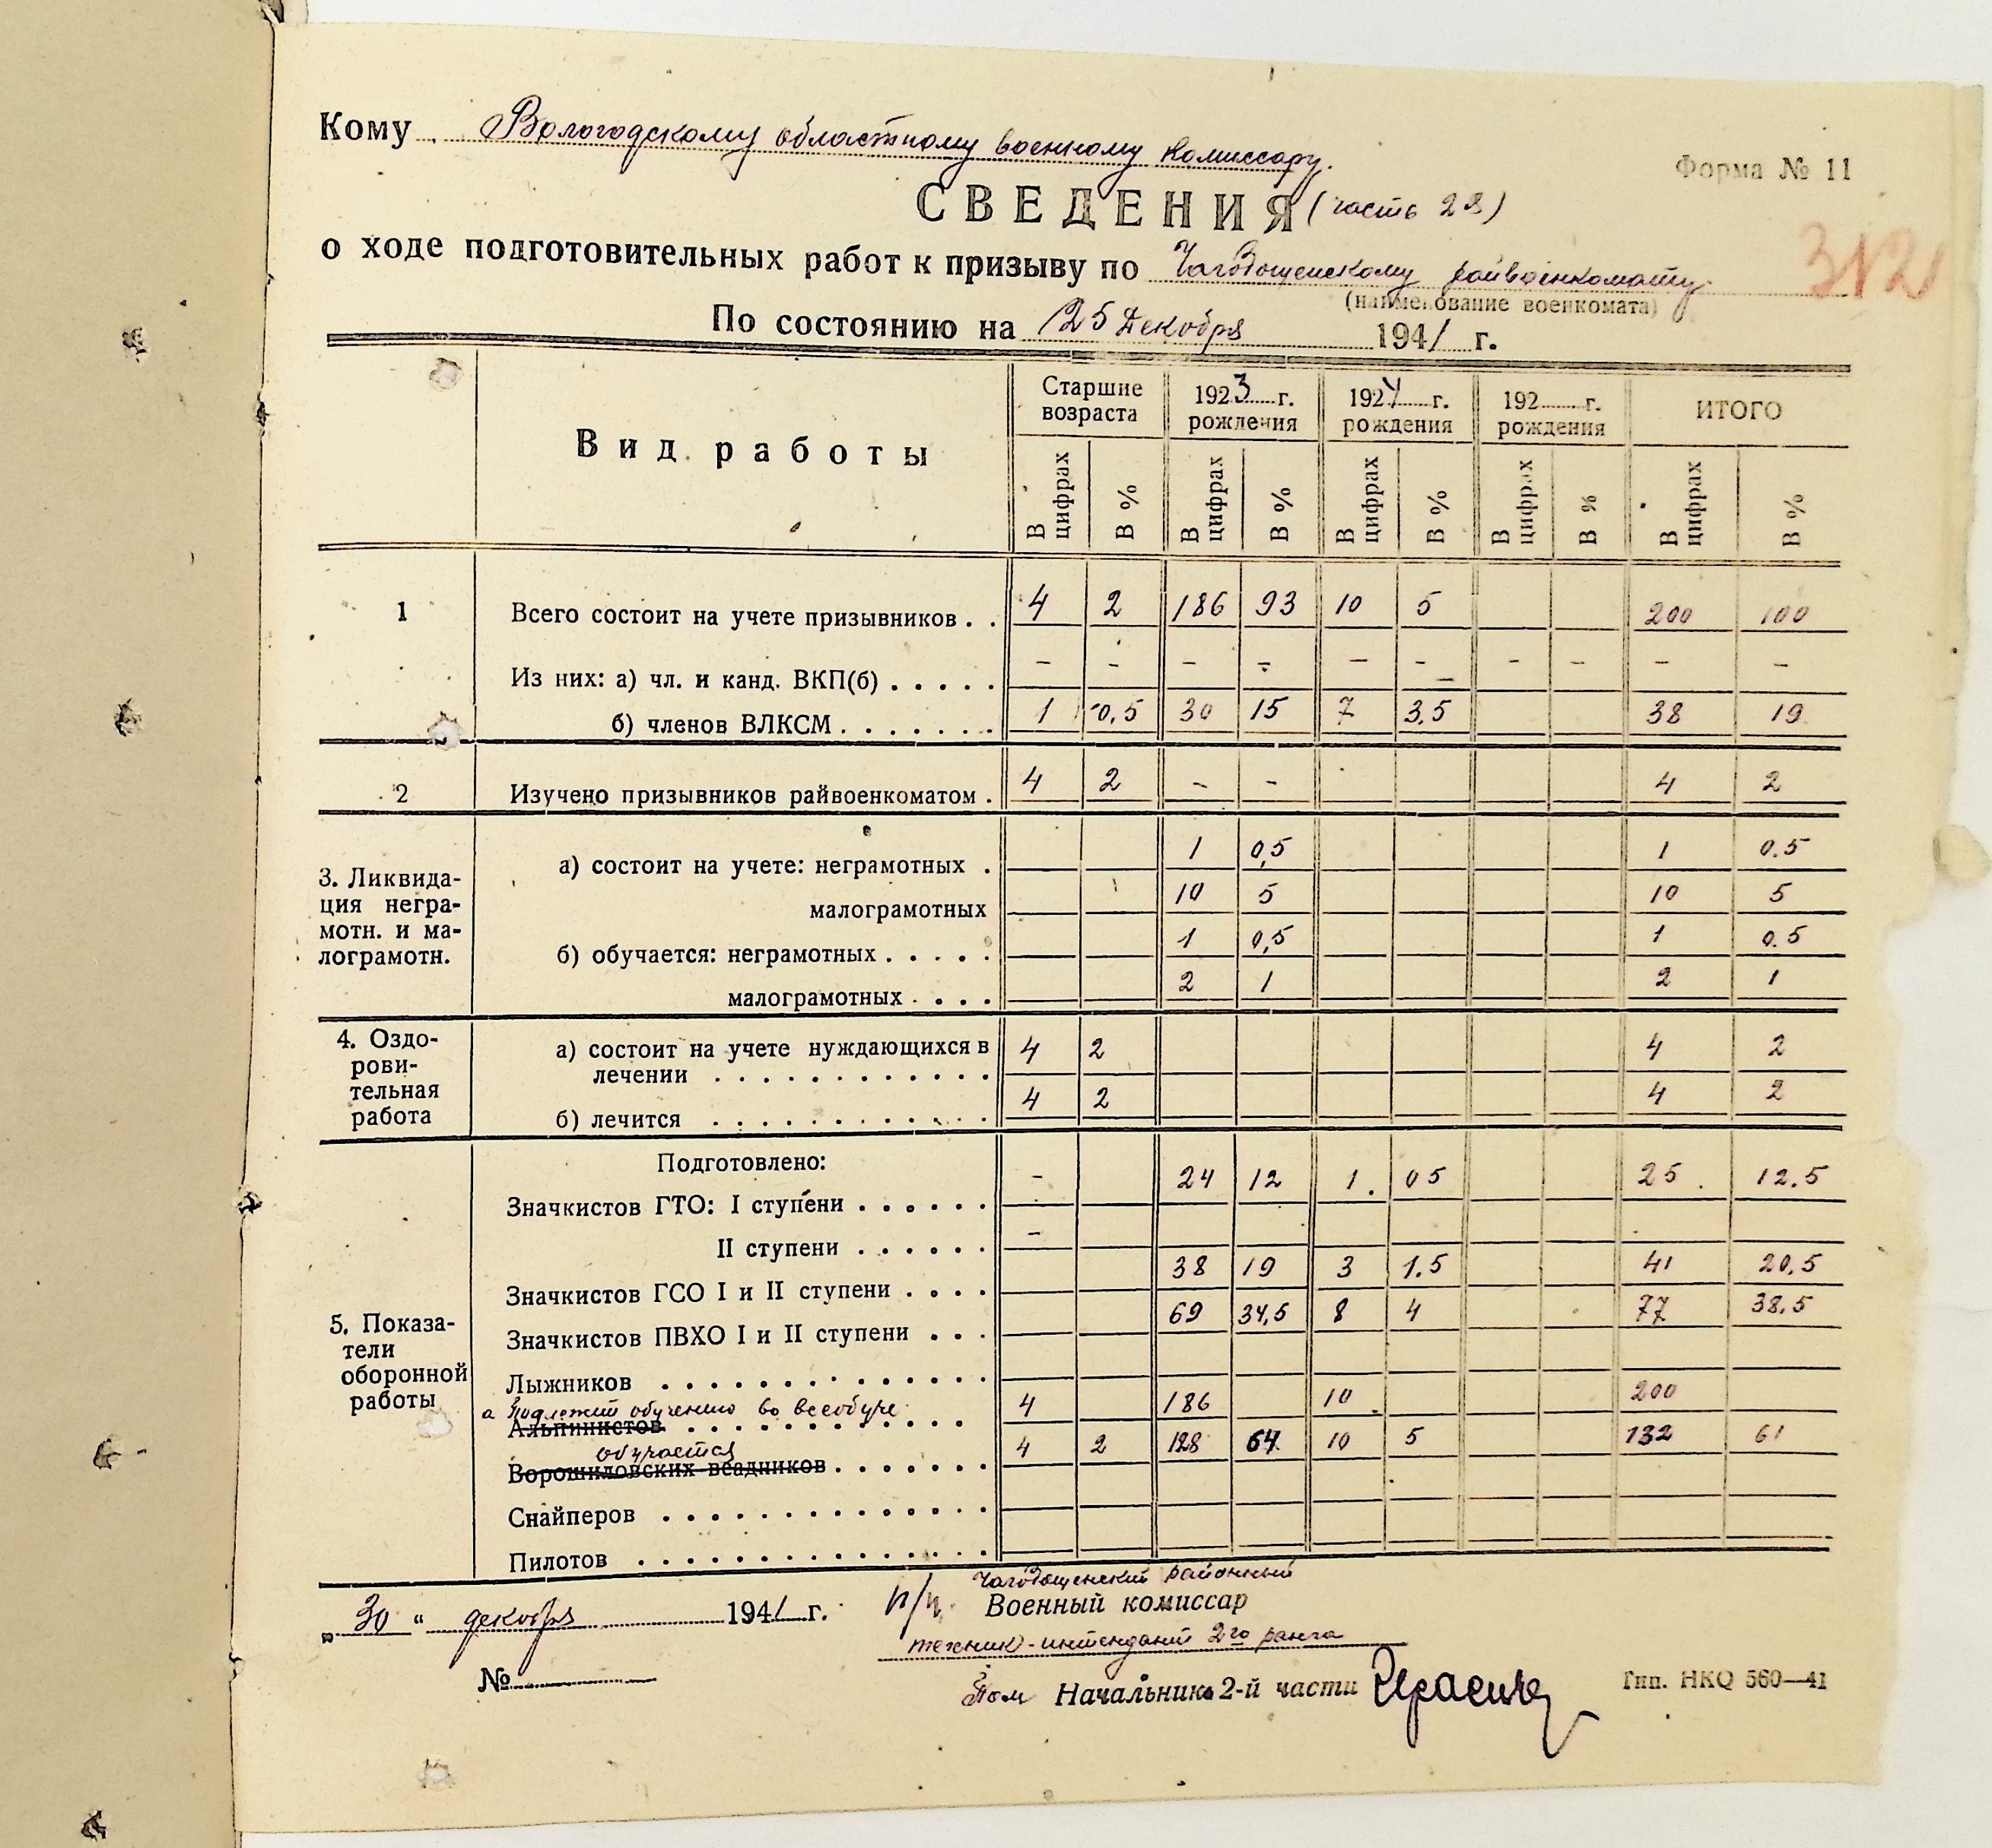 Кому Вологодскому областному военному комиссару.
Форма № 11
СВЕДЕНИЯ (часть 2я)
о ходе подготовительных работ к призыву по Чагодощенскому райвоенкомату.
(наименование военкомата)
По состоянию на 25 декабря 1941 г.
Вид работы Старшие возраста 1923 г. рождения 1924 г. рождения 192 г. рождения ИТОГО
В цифрах В % В цифрах В % В цифрах В % В цифрах В % В цифрах В %
1 Всего состоит на учете призывников . . 4 2 186 93 10 5 200 100
Из них: а) чл. и канд. ВКП(б) . . . . . - - - - - - - - - -
б) членов ВЛКСМ . . . . . . . 1 0,5 30 15 7 3,5 38 19
2 Изучено призывников райвоенкоматом . 4 2 - - 4 2
3. Ликвида-
ция негра-
мотн. и ма-
лограмотн.
а) состоит на учете: неграмотных . 1 0,5 1 0.5
малограмотных 10 5 10 5
б) обучается: неграмотных . . . . . 1 0,5 1 0.5
малограмотных . . . . 2 1 2 1
4. Оздо-
рови-
тельная
работа
а) состоит на учете нуждающихся в
лечении . . . . . . . . . . . . 4 2 4 2
б) лечится . . . . . . . . . . . . 4 2 4 2
5. Показа-
тели
оборонной
работы
Подготовлено:
Значкистов ГТО: I ступени . . . . . . - 24 12 1. 05 25. 12.5
II ступени . . . . . . -
Значкистов ГСО I и II ступени . . . . 38 19 3 1.5 41 20,5
Значкистов ПВХО I и II ступени . . . 69 34,5 8 4 77 38.5
Лыжников . . . . . . . . . . . . . .
а подлежит обучению во всеобуче
Альпинистов . . . . . . . . . . . . 4 186 10 200
обучается
Ворошиловских всадников . . . . . . . 4 2 128 64 10 5 132 61
Снайперов . . . . . . . . . . . . . .
Пилотов . . . . . . . . . . . . . . .
Чагодощенский районный
„30“ декабря 1941 г. п/п. Военный комиссар
техник-интендант 2го ранга
№
Пом Начальник 2-й части
Тип. НКО 560—41